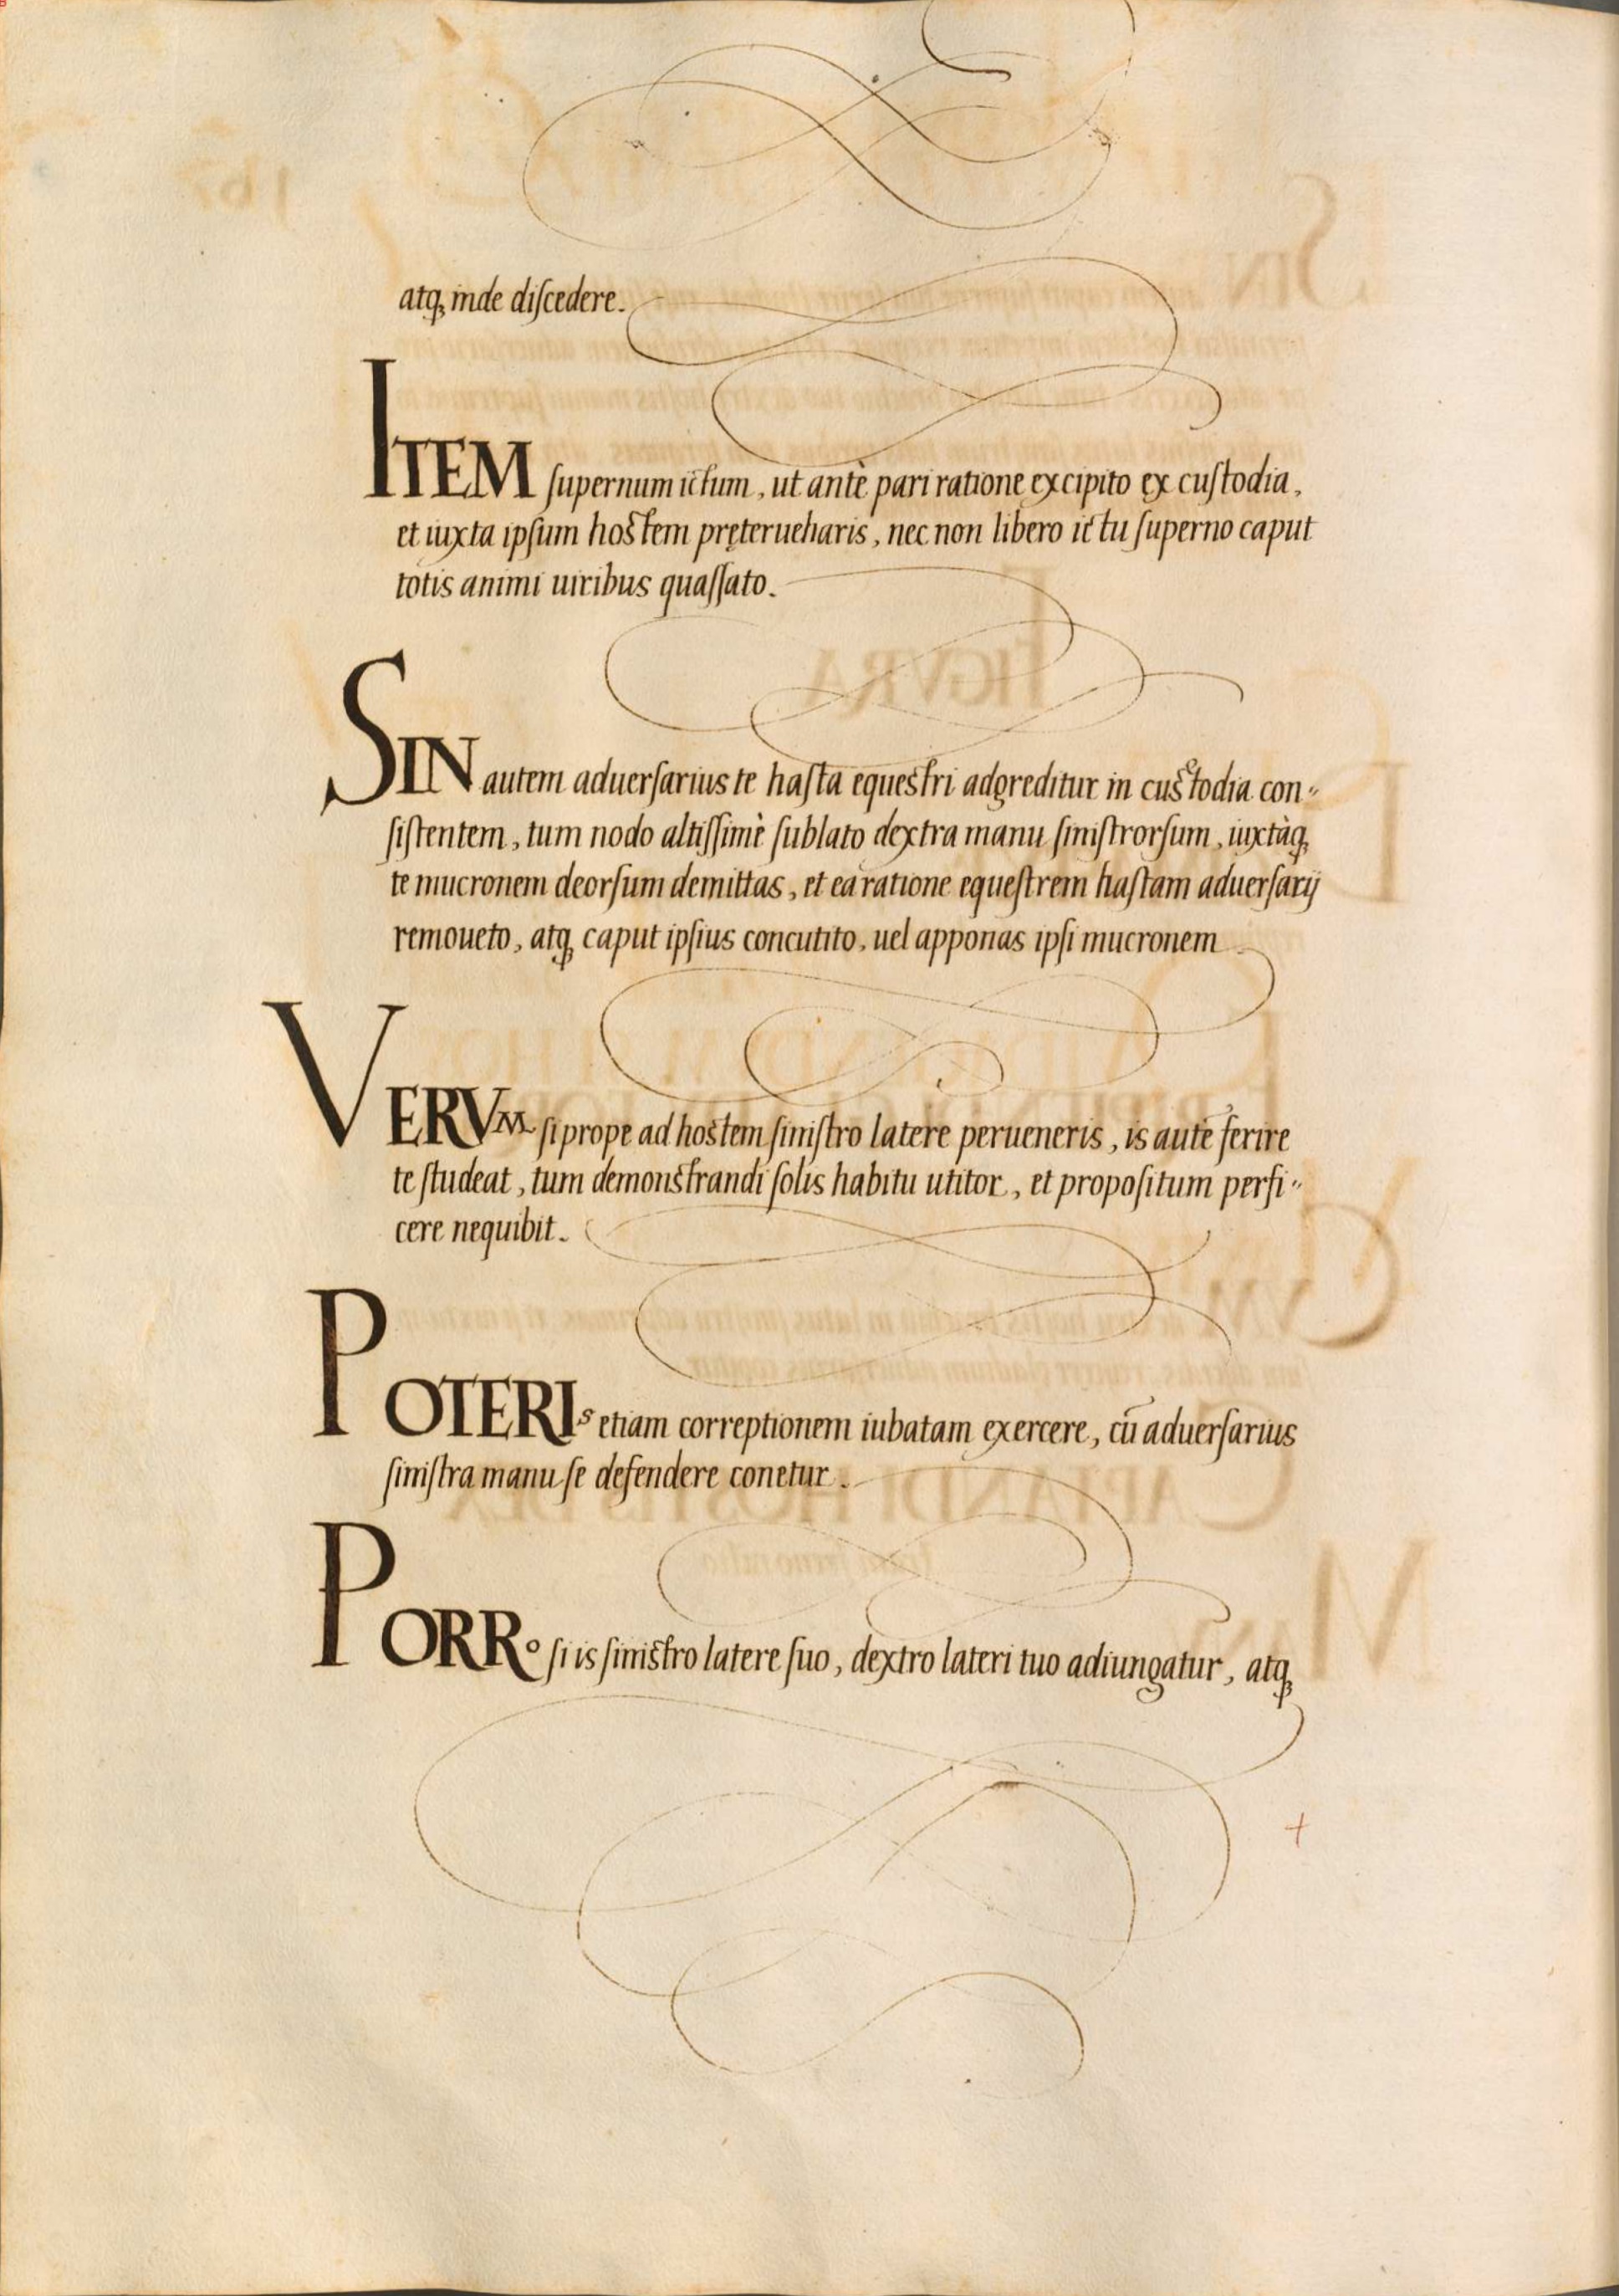 atq; inde diſcedere.
ITEM ſupernum ictum, ut antè pari ratione excipito ex cuſtodia,
et iuxta ipſum hoſtem pręterueharis, nec non libero ictu ſuperno caput
totis animi uiribus quaſſato.
SIN autem aduerſarius te haſta equeſtri adgreditur in cuſtodia con„
ſiſtentem, tum nodo altiſſimè ſublato dextra manu ſiniſtrorſum, iuxtàq;
te mucronem deorſum demittas, et ea ratione equeſtrem haſtam aduerſarij
remoueto, atq; caput ipſius concutito, uel apponas ipſi mucronem
VERVM ſi prope ad hoſtem ſiniſtro latere perueneris, is autē ferire
te ſtudeat, tum demonſtrandi ſolis habitu utitor, et propoſitum perfi„
cere nequibit.
POTERIs etiam correptionem iubatam exercere, cū aduerſarius
ſiniſtra manu ſe defendere conetur.
PORRo ſi is ſiniſtro latere ſuo, dextro lateri tuo adiungatur, atq;